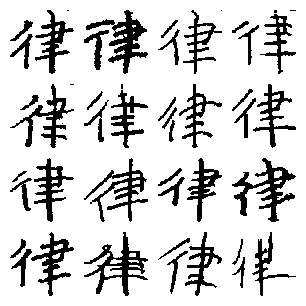 律律律律
律律律律
律律律律
律律律律